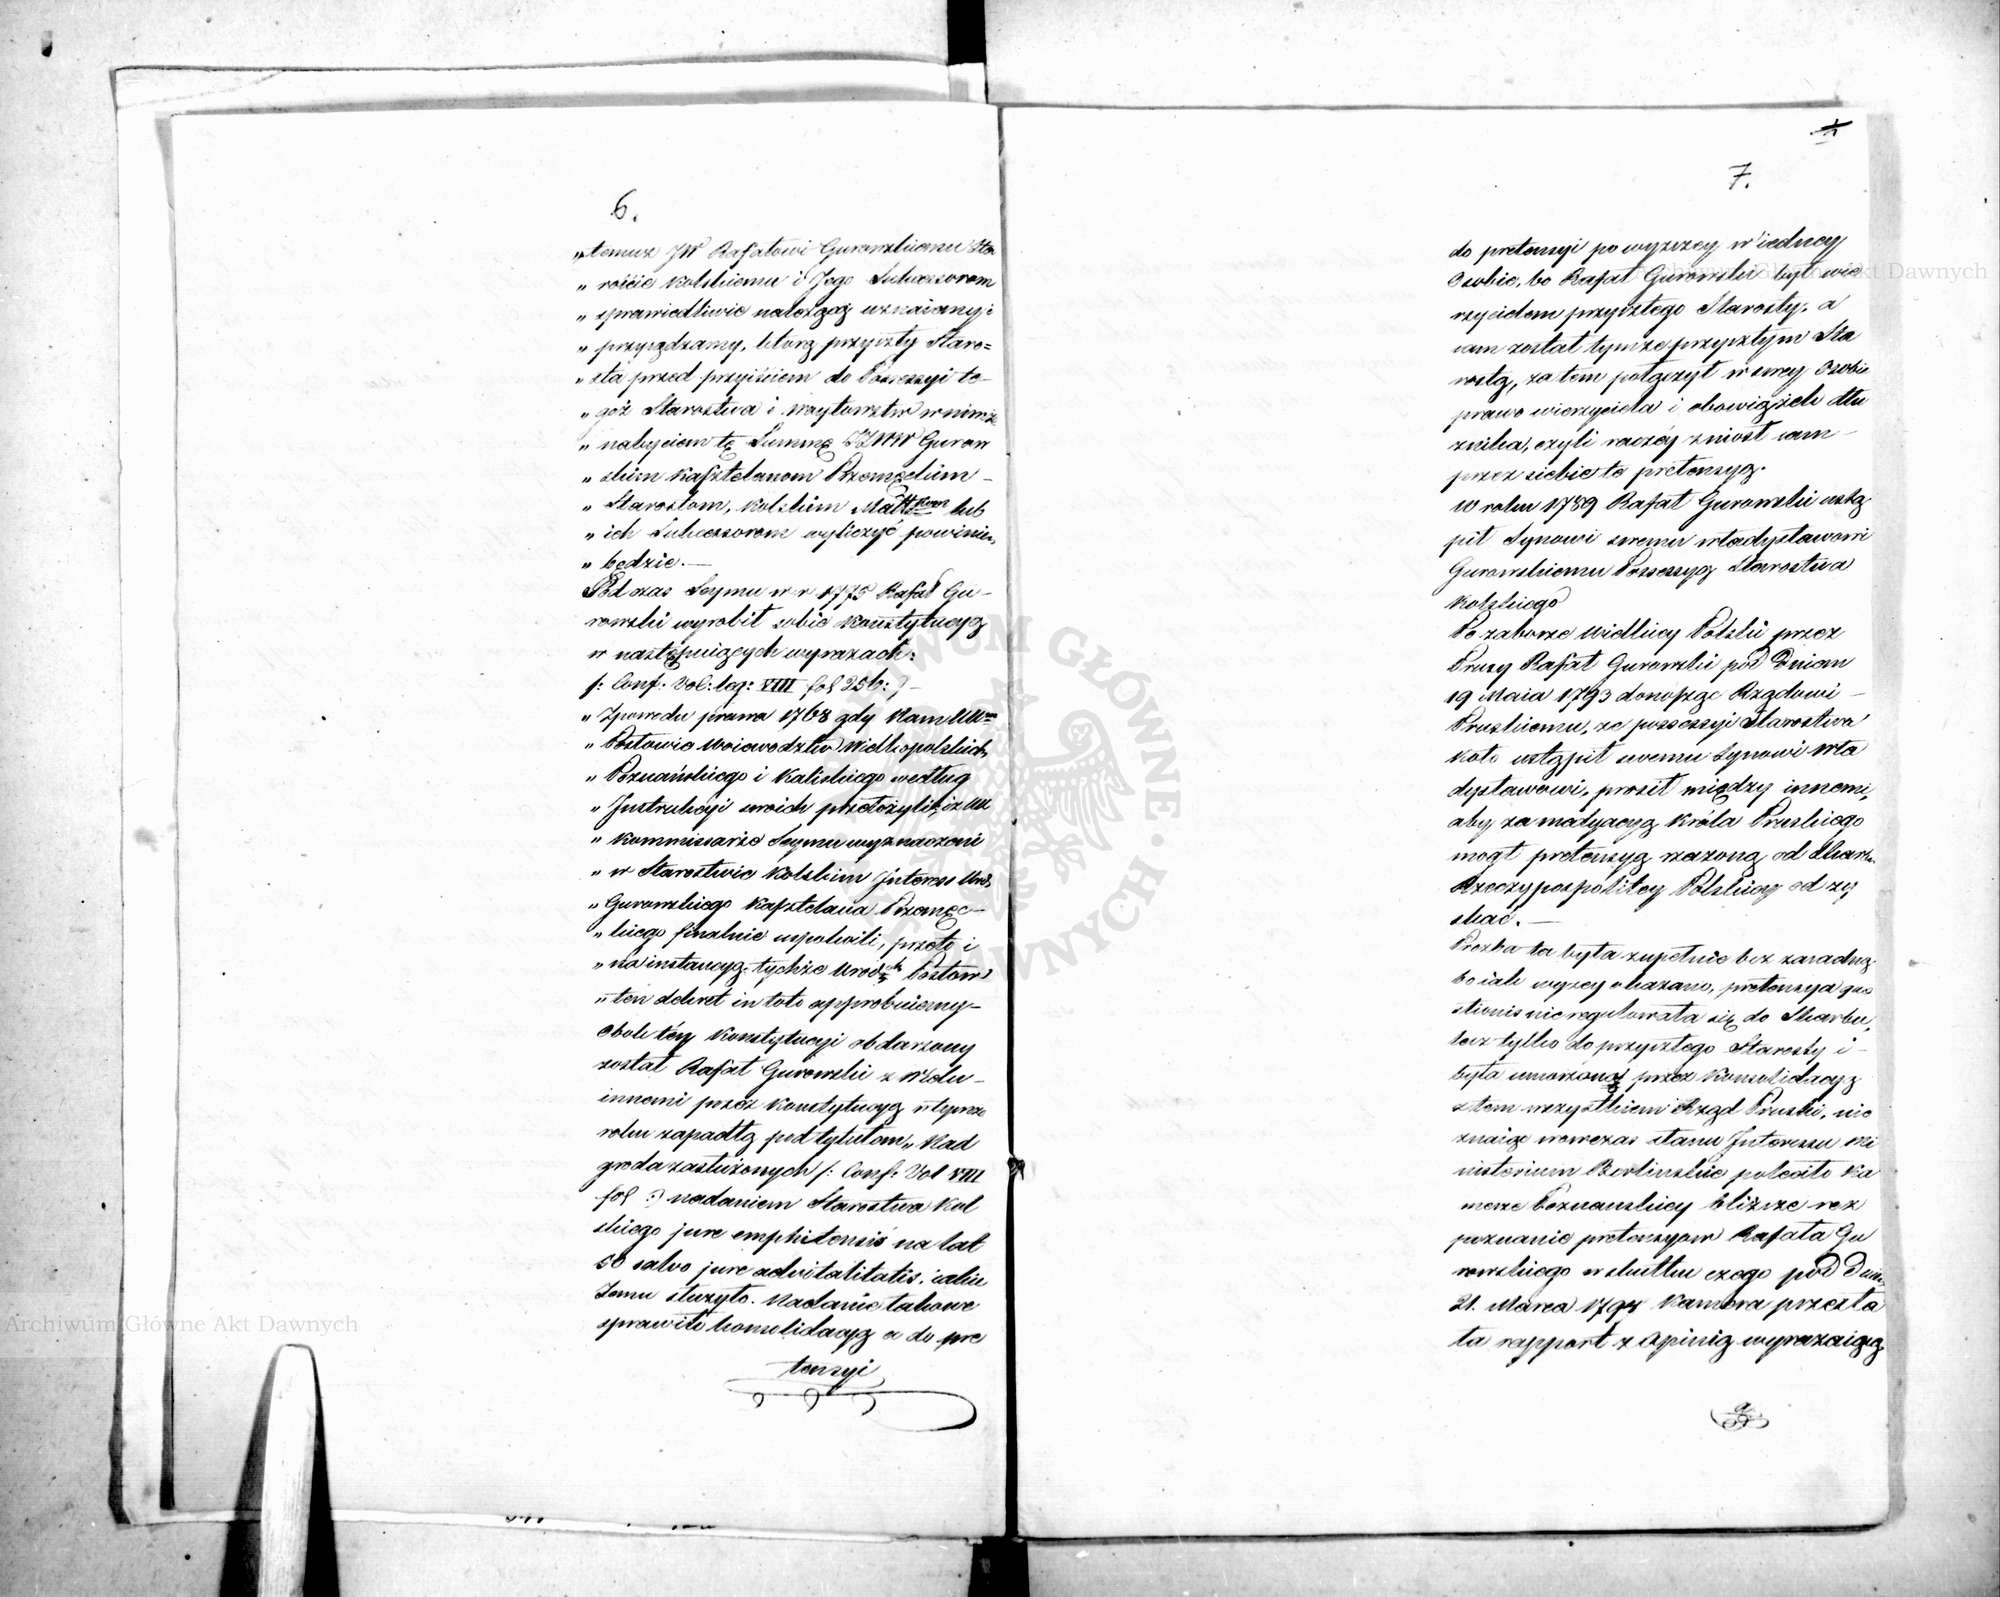 6.
„temuż JW Rafałowi Gurowskiemu Sta
„rościе Kolskiemu i Jego Sukcessorom
„sprawiedliwie należącą uznaiemy i
„przysądzamy, którą przyszły Staro=
„sta przed przyiściem do Possessyi te-
„goż Starostwa i woytowstw w nim
„nabyciem tę Summę JJWW Gurow
„skim Kasztelanom Przemęckim -
„Starostom, Kolskim Małżkom lub
„ich Sukcessorom wyliczyć powinien
„będzie. —
Podczas Seymu w r 1775 Rafał Gu-
rowski wyrobił sobie Konstytucyą
w następuiących wyrazach:
/: Conf: Vol: leg: VIII fol 256: /-
„Zpowodu prawa 1768 gdy Nam
„Posłowie Woiewodztw Wielkopolskich,
„Poznańskiego i Kaliskiego według
„Instrukcyi swoich przełożyli, iż
„Kommissarze Seymu wyznaczeni
„w Starostwie Kolskim Interess Uro.
„Gurowskiego Kasztelana Przemęc-
„kiego finalnie uspokoili, przeto i
„na instancyą tychże Urodz. Posłow
„ten dekret in toto approbuiemy-
Obok téy Konstytucyi obdarzony
został Rafał Gurowski z wielu -
innemi przez Konstytucyą w tymże
roku zapadłą pod tytułem „Nad
groda zasłużonych /: Conf: Vol VIII
fol :/ nadaniem Starostwa Kol
skiego jure emphiteusis na lat
50 salvo jure advitalitatis, iakie
Jemu służyło. Nadanie takowe
sprawiło konsolidacyą a do pre
tensyi
7.
do pretensyi powyższey w iedney
Osobie, bo Rafał Gurowski był wie
rzycielem przyszłego Starosty, a
sam został tymże przyszłym Sta
rostą, zatem połączył w swey Osobie
prawo wierzyciela i obowiązek dłu
żnika, czyli raczéy zniósł sam -
przez siebie tę pretensyą.
W roku 1789 Rafał Gurowski ustą
pił Synowi swemu Władysławowi
Gurowskiemu Possessyą Starostwa
Kolskiego
Po zaborze Wielkiey Polski przez
Prusy Rafał Gurowski pod Dniem
19 Maia 1793 donosząc Rządowi -
Pruskiemu, że possessyi Starostwa
Koło ustąpił swemu Synowi Wła
dysławowi, prosił między innemi,
aby za medyacyą Króla Pruskiego
mógł pretensyą rzeczoną od Skarbu
Rzeczypospolitey Polskiey odzy
skać. —
Prozba ta była zupełnie bez zasadną
bo iak wyżey okazano, pretensya que
stionis nie regulowała się do Skarbu,
lecz tylko do przyszłego Starosty i -
była umorzoną przez Konsolidacyą
z tem wszystkiem Rząd Pruski, nie
znaiąc wowczas stanu Interessu Mi
nisterium Berlińskie poleciło Ka
merze Poznanskiey bliższe roz
poznanie pretensyow Rafała Gu
rowskiego w skutku czego pod Dniem
21. Marca 1794 Kamera przesła
ła rapport z Opinią wyrazaiącą
a
Archiwum Główne Akt Dawnych
Archiwum Główne Akt Dawnych